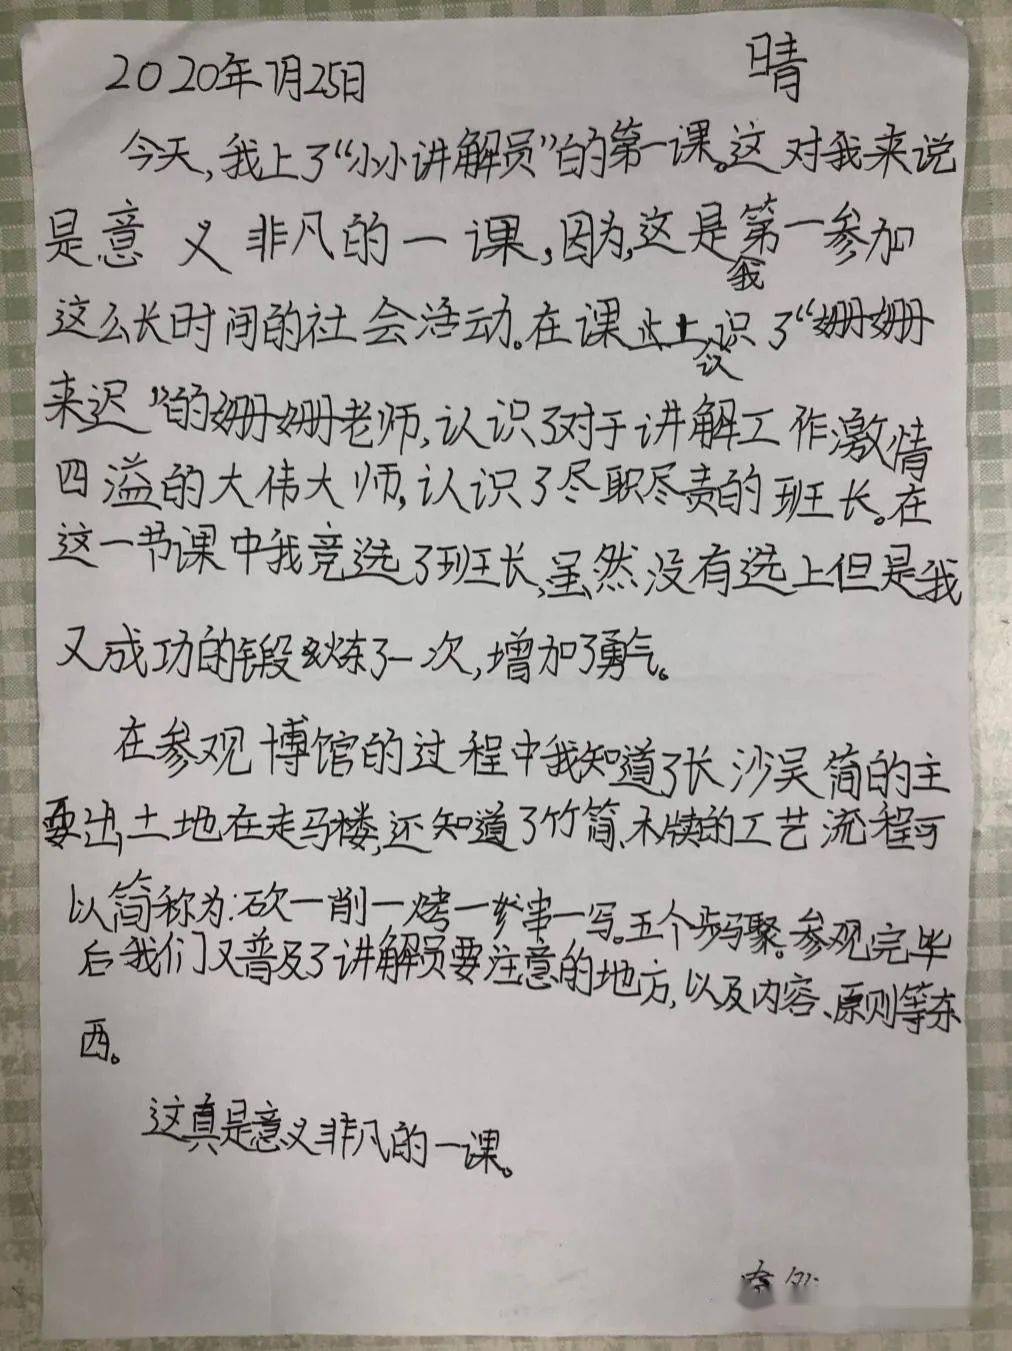 2020年7月25日 晴
今天,我上了“小小讲解员”的第一课。这对我来说
是意义非凡的一课,因为,这是我第一参加
这么长时间的社会活动。在课上认识了“姗姗
来迟”的姗姗老师,认识了对于讲解工作激情
四溢的大伟大师,认识了尽职尽责的班长。在
这一节课中我竞选了班长,虽然没有选上但是我
又成功的锻炼了一次,增加了勇气。
在参观博馆的过程中我知道了长沙吴简的主
要出土地在走马楼,还知道了竹简、木牍的工艺流程可
以简称为:砍一削一烤一串一写。五个步骤。参观完毕
后我们又普及了讲解员要注意的地方,以及内容、原则等东
西。
这真是意义非凡的一课。